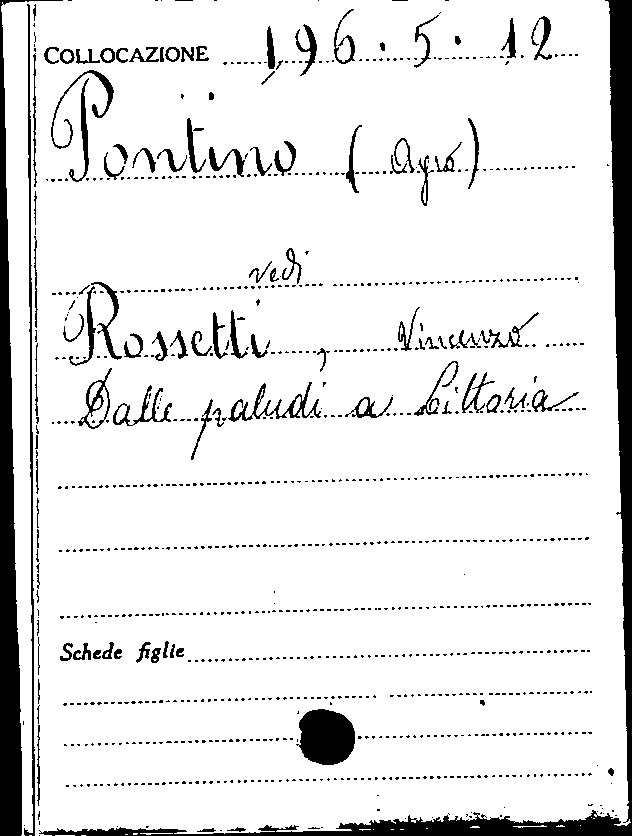 COLLOCAZIONE 196.5.12
Pontino (Agro)
vedi
Rossetti, Vincenzo
Dalle paludi a Littoria
Schede figlie